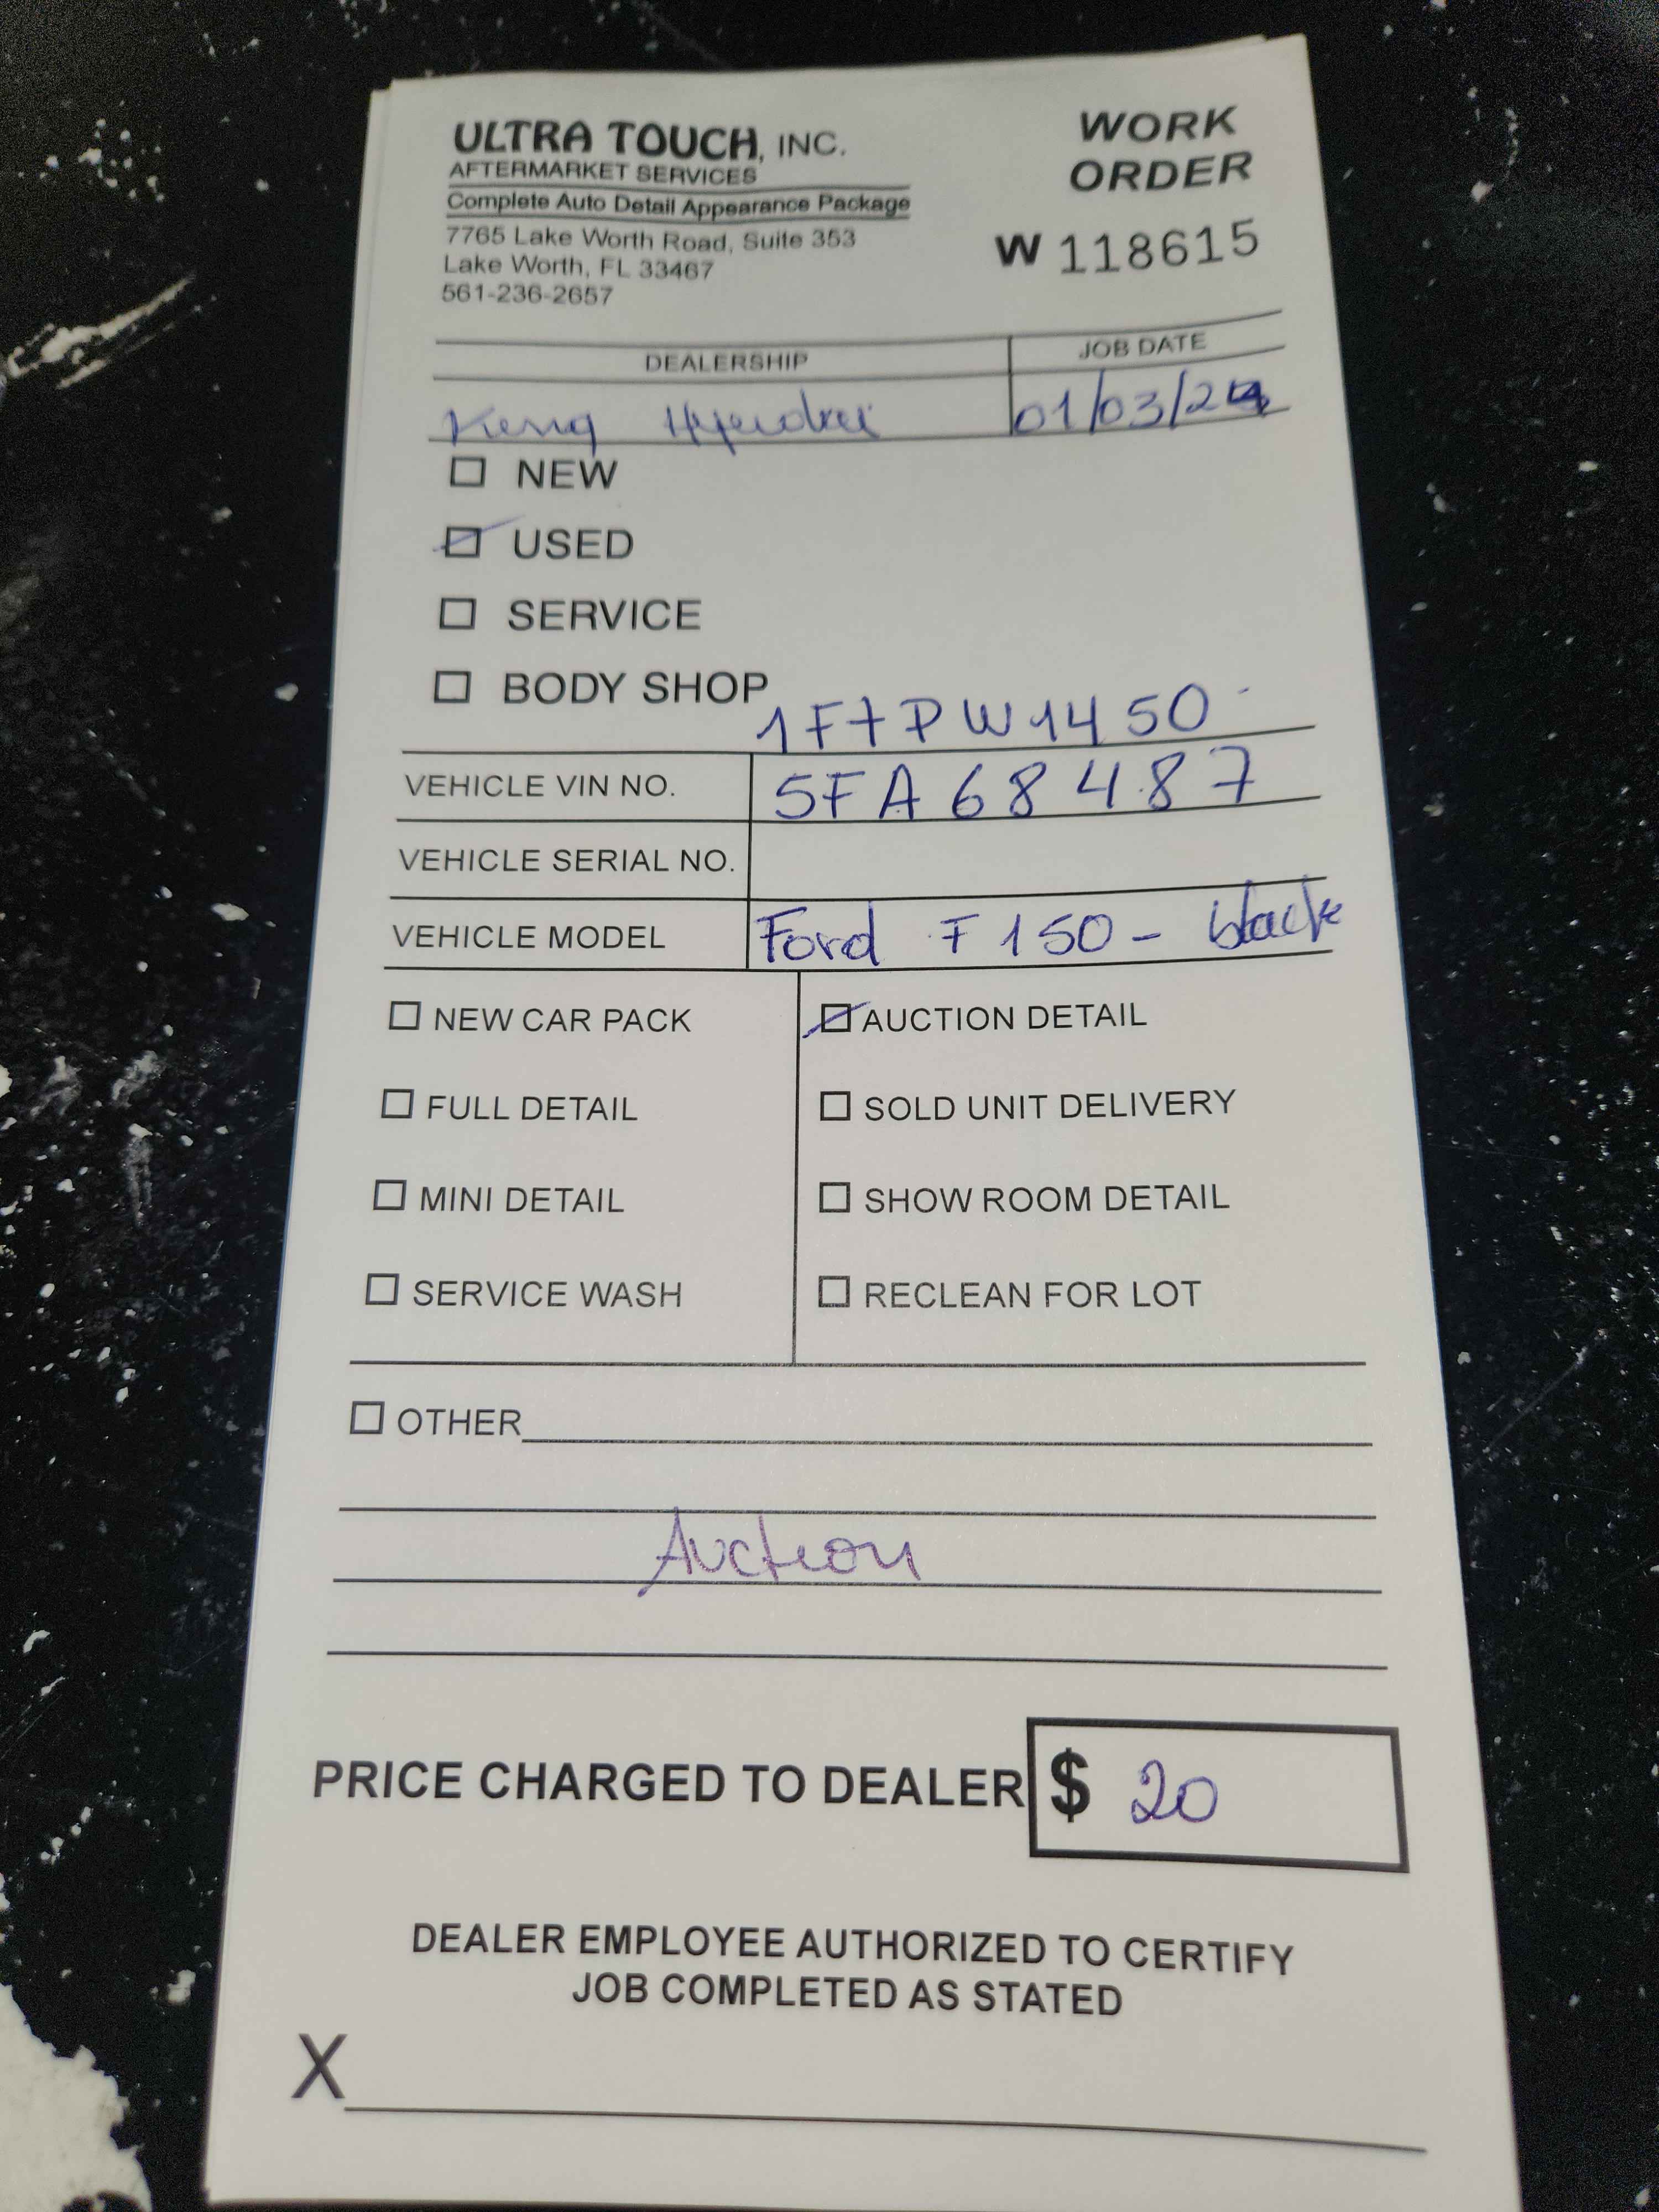 ULTRA TOUCH, INC.
AFTERMARKET SERVICES
Complete Auto Detail Appearance Package
7765 Lake Worth Road, Suite 353
Lake Worth, FL 33467
561-236-2657
WORK
ORDER
W 118615
DEALERSHIP
JOB DATE
01/03/24
NEW
USED
SERVICE
BODY SHOP
1FTPW1450
VEHICLE VIN NO. 5FA68487
VEHICLE SERIAL NO.
VEHICLE MODEL Ford F150 - black
NEW CAR PACK
FULL DETAIL
MINI DETAIL
SERVICE WASH
AUCTION DETAIL
SOLD UNIT DELIVERY
SHOW ROOM DETAIL
RECLEAN FOR LOT
OTHER
Auction
PRICE CHARGED TO DEALER $ 20
DEALER EMPLOYEE AUTHORIZED TO CERTIFY
JOB COMPLETED AS STATED
X